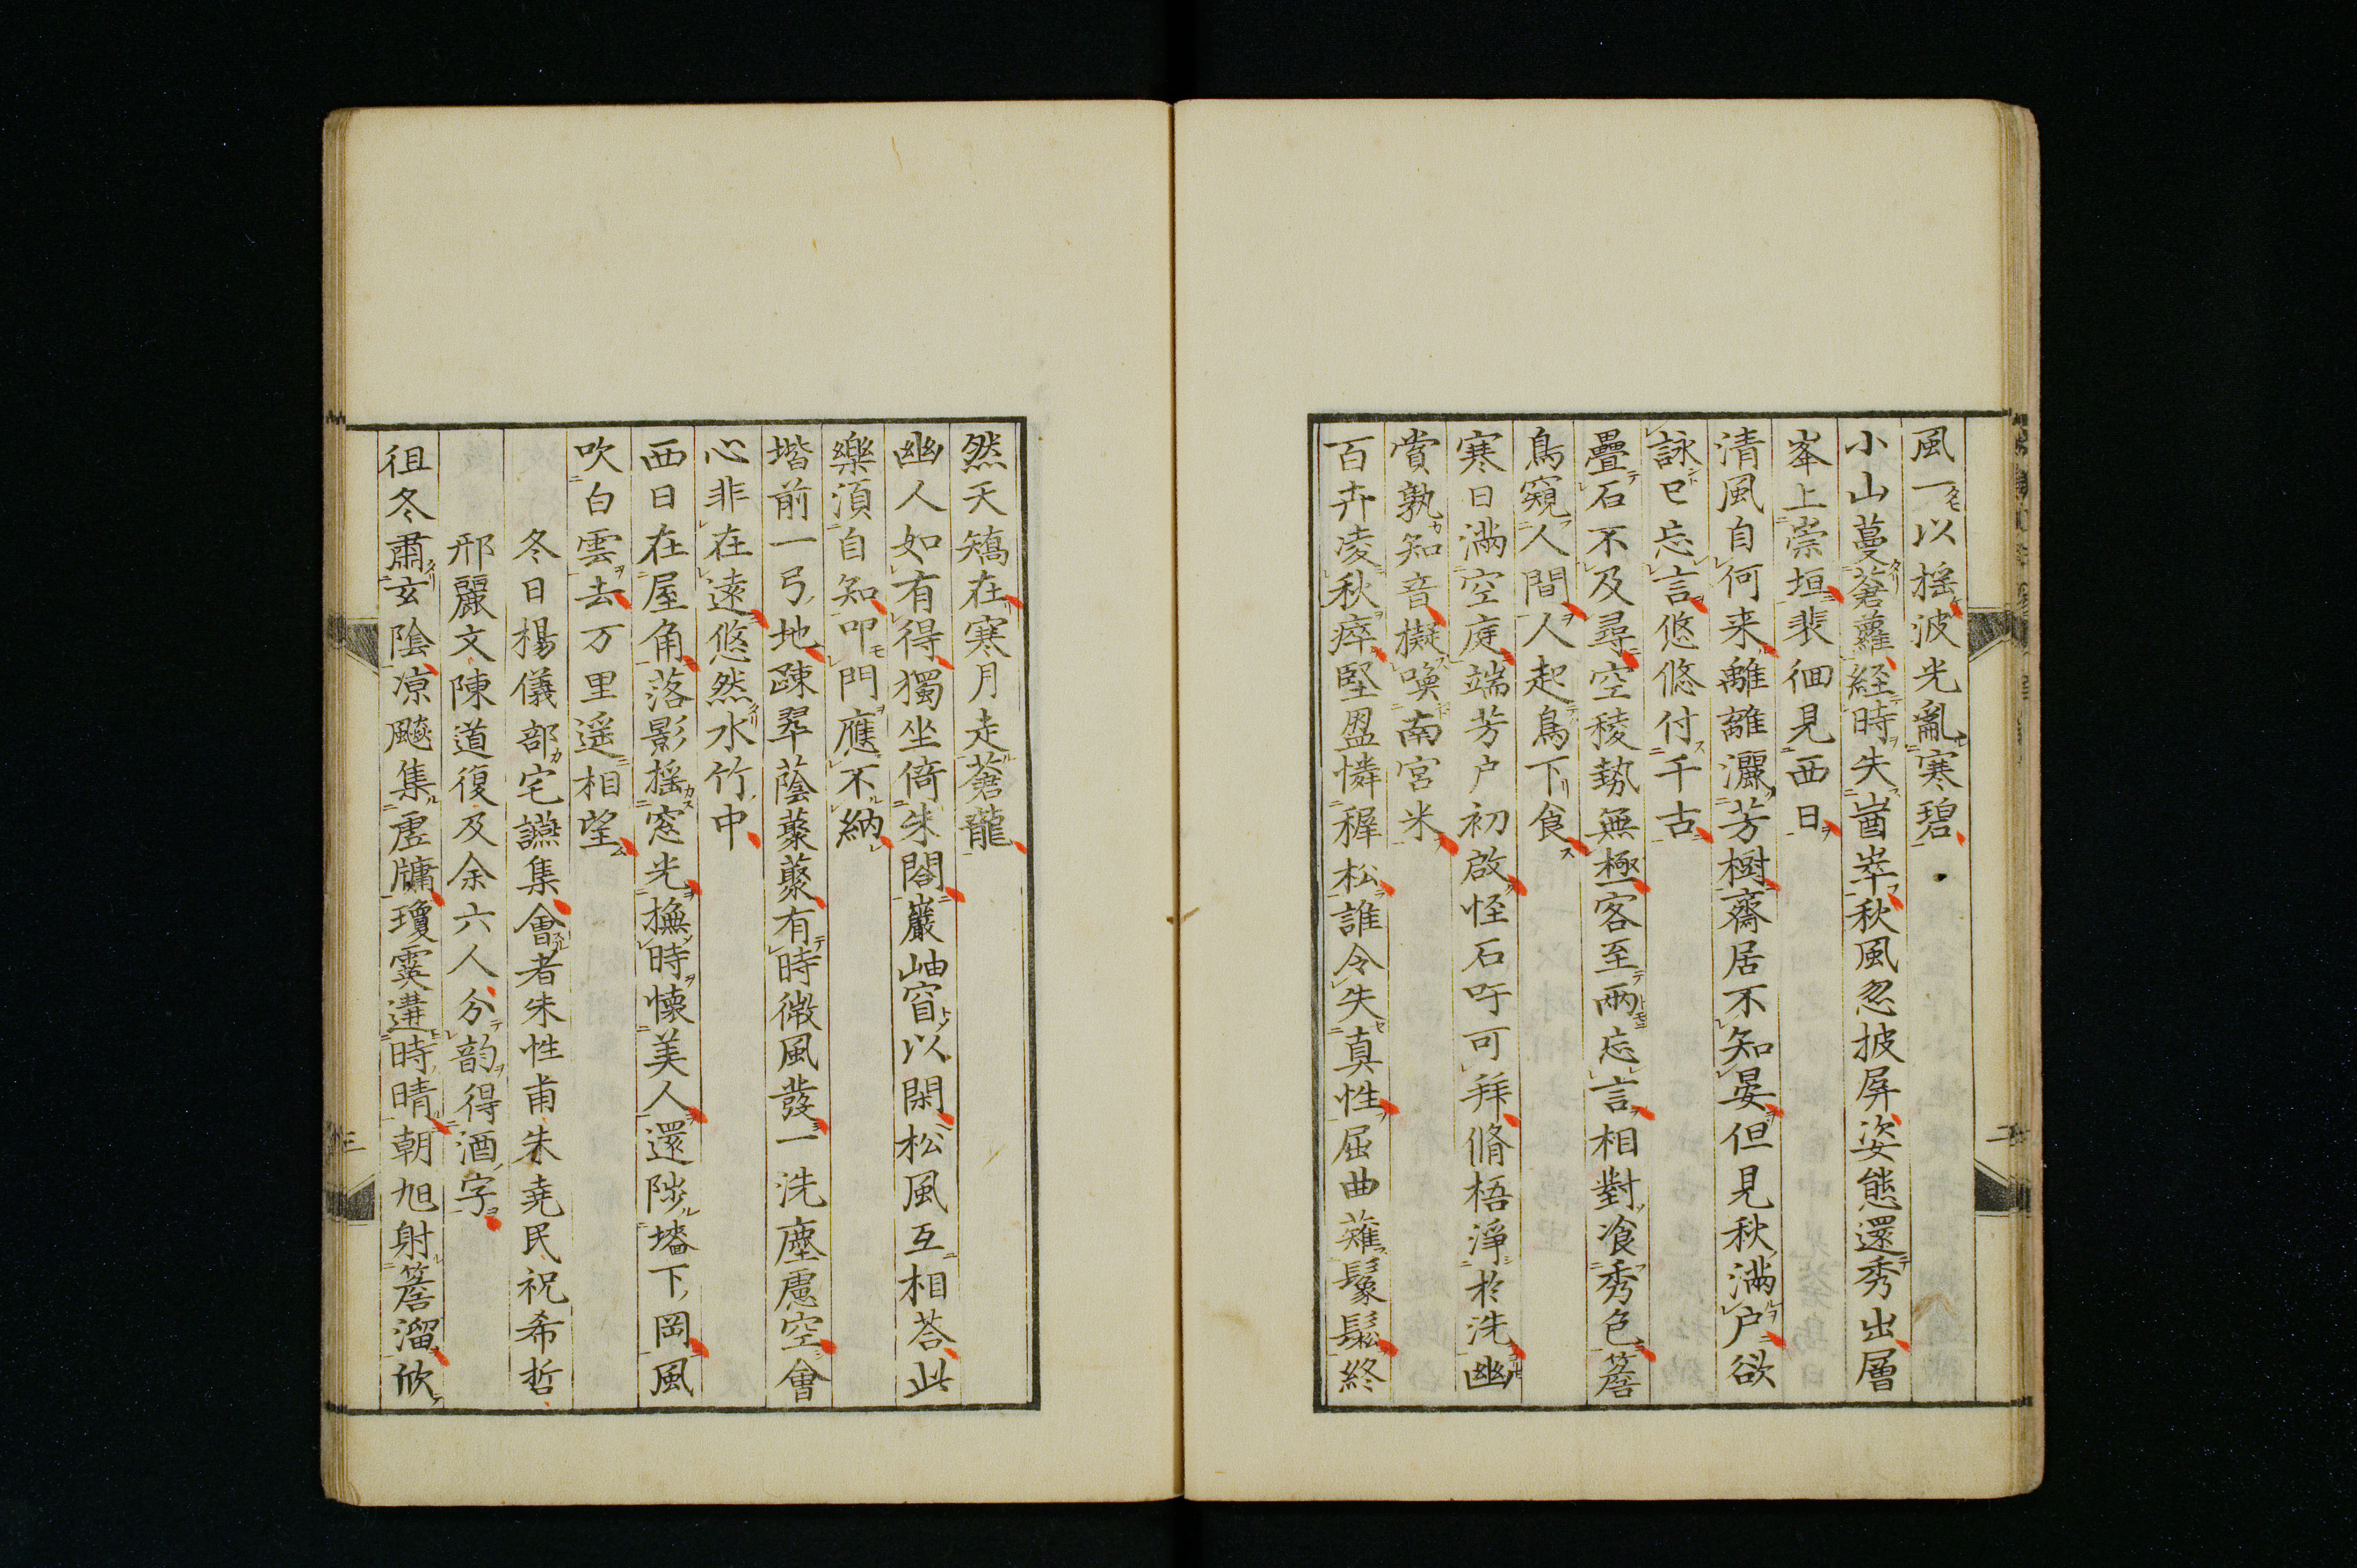 風一以揺波光亂寒碧
小山蔓蒼蘿経時失崷崒秋風忽披屏姿態還秀出層
峯上崇垣裴徊見西日
清風自何来離離灑芳樹齋居不知晏但見秋滿户欲
詠已忘言悠悠付千古
疊石不及尋空稜勢無極客至兩忘言相對飡秀色簷
鳥窺人間人起鳥下食
寒日滿空庭端芳户初啟怪石吁可拜脩梧淨於洗幽
賞孰知音擬喚南宮米
百卉凌秋瘁堅盈憐稺松誰令失真性屈曲薙鬖鬆終
然天矯在寒月走蒼龍
幽人如有得獨坐倚朱閣巖岫窅以閑松風互相荅此
樂湏自知叩門應不納
堦前一弓地疎翠蔭藂藂有時微風發一洗塵慮空會
心非在遠悠然水竹中
西日在屋角落影揺窓光撫時懐美人還陟墻下岡風
吹白雲去万里遥相望
冬日楊儀部宅讌集會者朱性甫朱堯民祝希哲
邢麗文陳道復及余六人分韵得酒字
徂冬肅玄陰凉飈集虚牗瓊霙遘時晴朝旭射簷溜欣
二
三